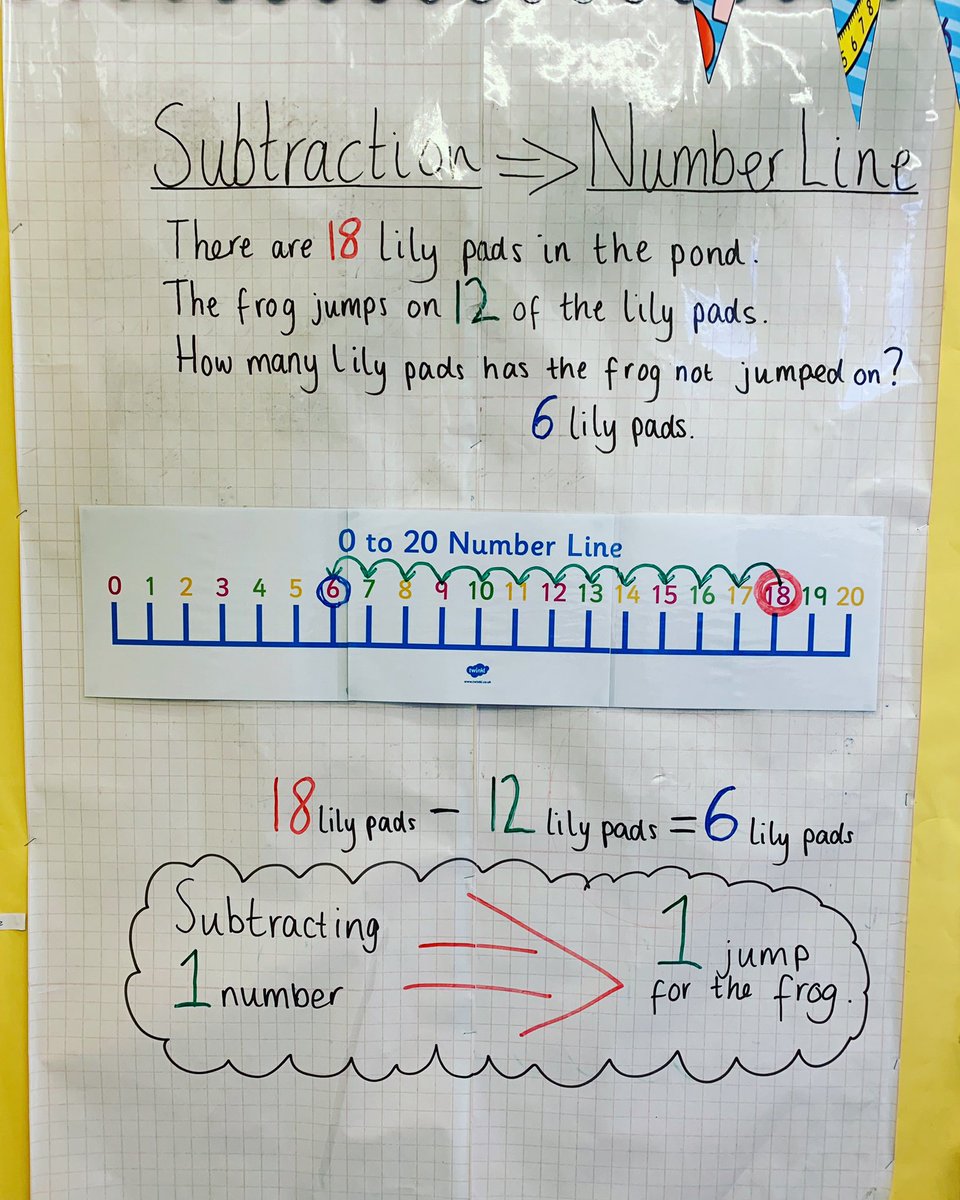 Subtraction => Number Line
There are 18 lily pads in the pond.
The frog jumps on 12 of the lily pads.
How many lily pads has the frog not jumped on?
6 lily pads.
0 to 20 Number Line
0 1 2 3 4 5 6 7 8 9 10 11 12 13 14 15 16 17 18 19 20
twinkl
www.twinkl.co.uk
18 lily pads - 12 lily pads = 6 lily pads
Subtracting
1 number
1 jump
for the frog.
5 6 7 8